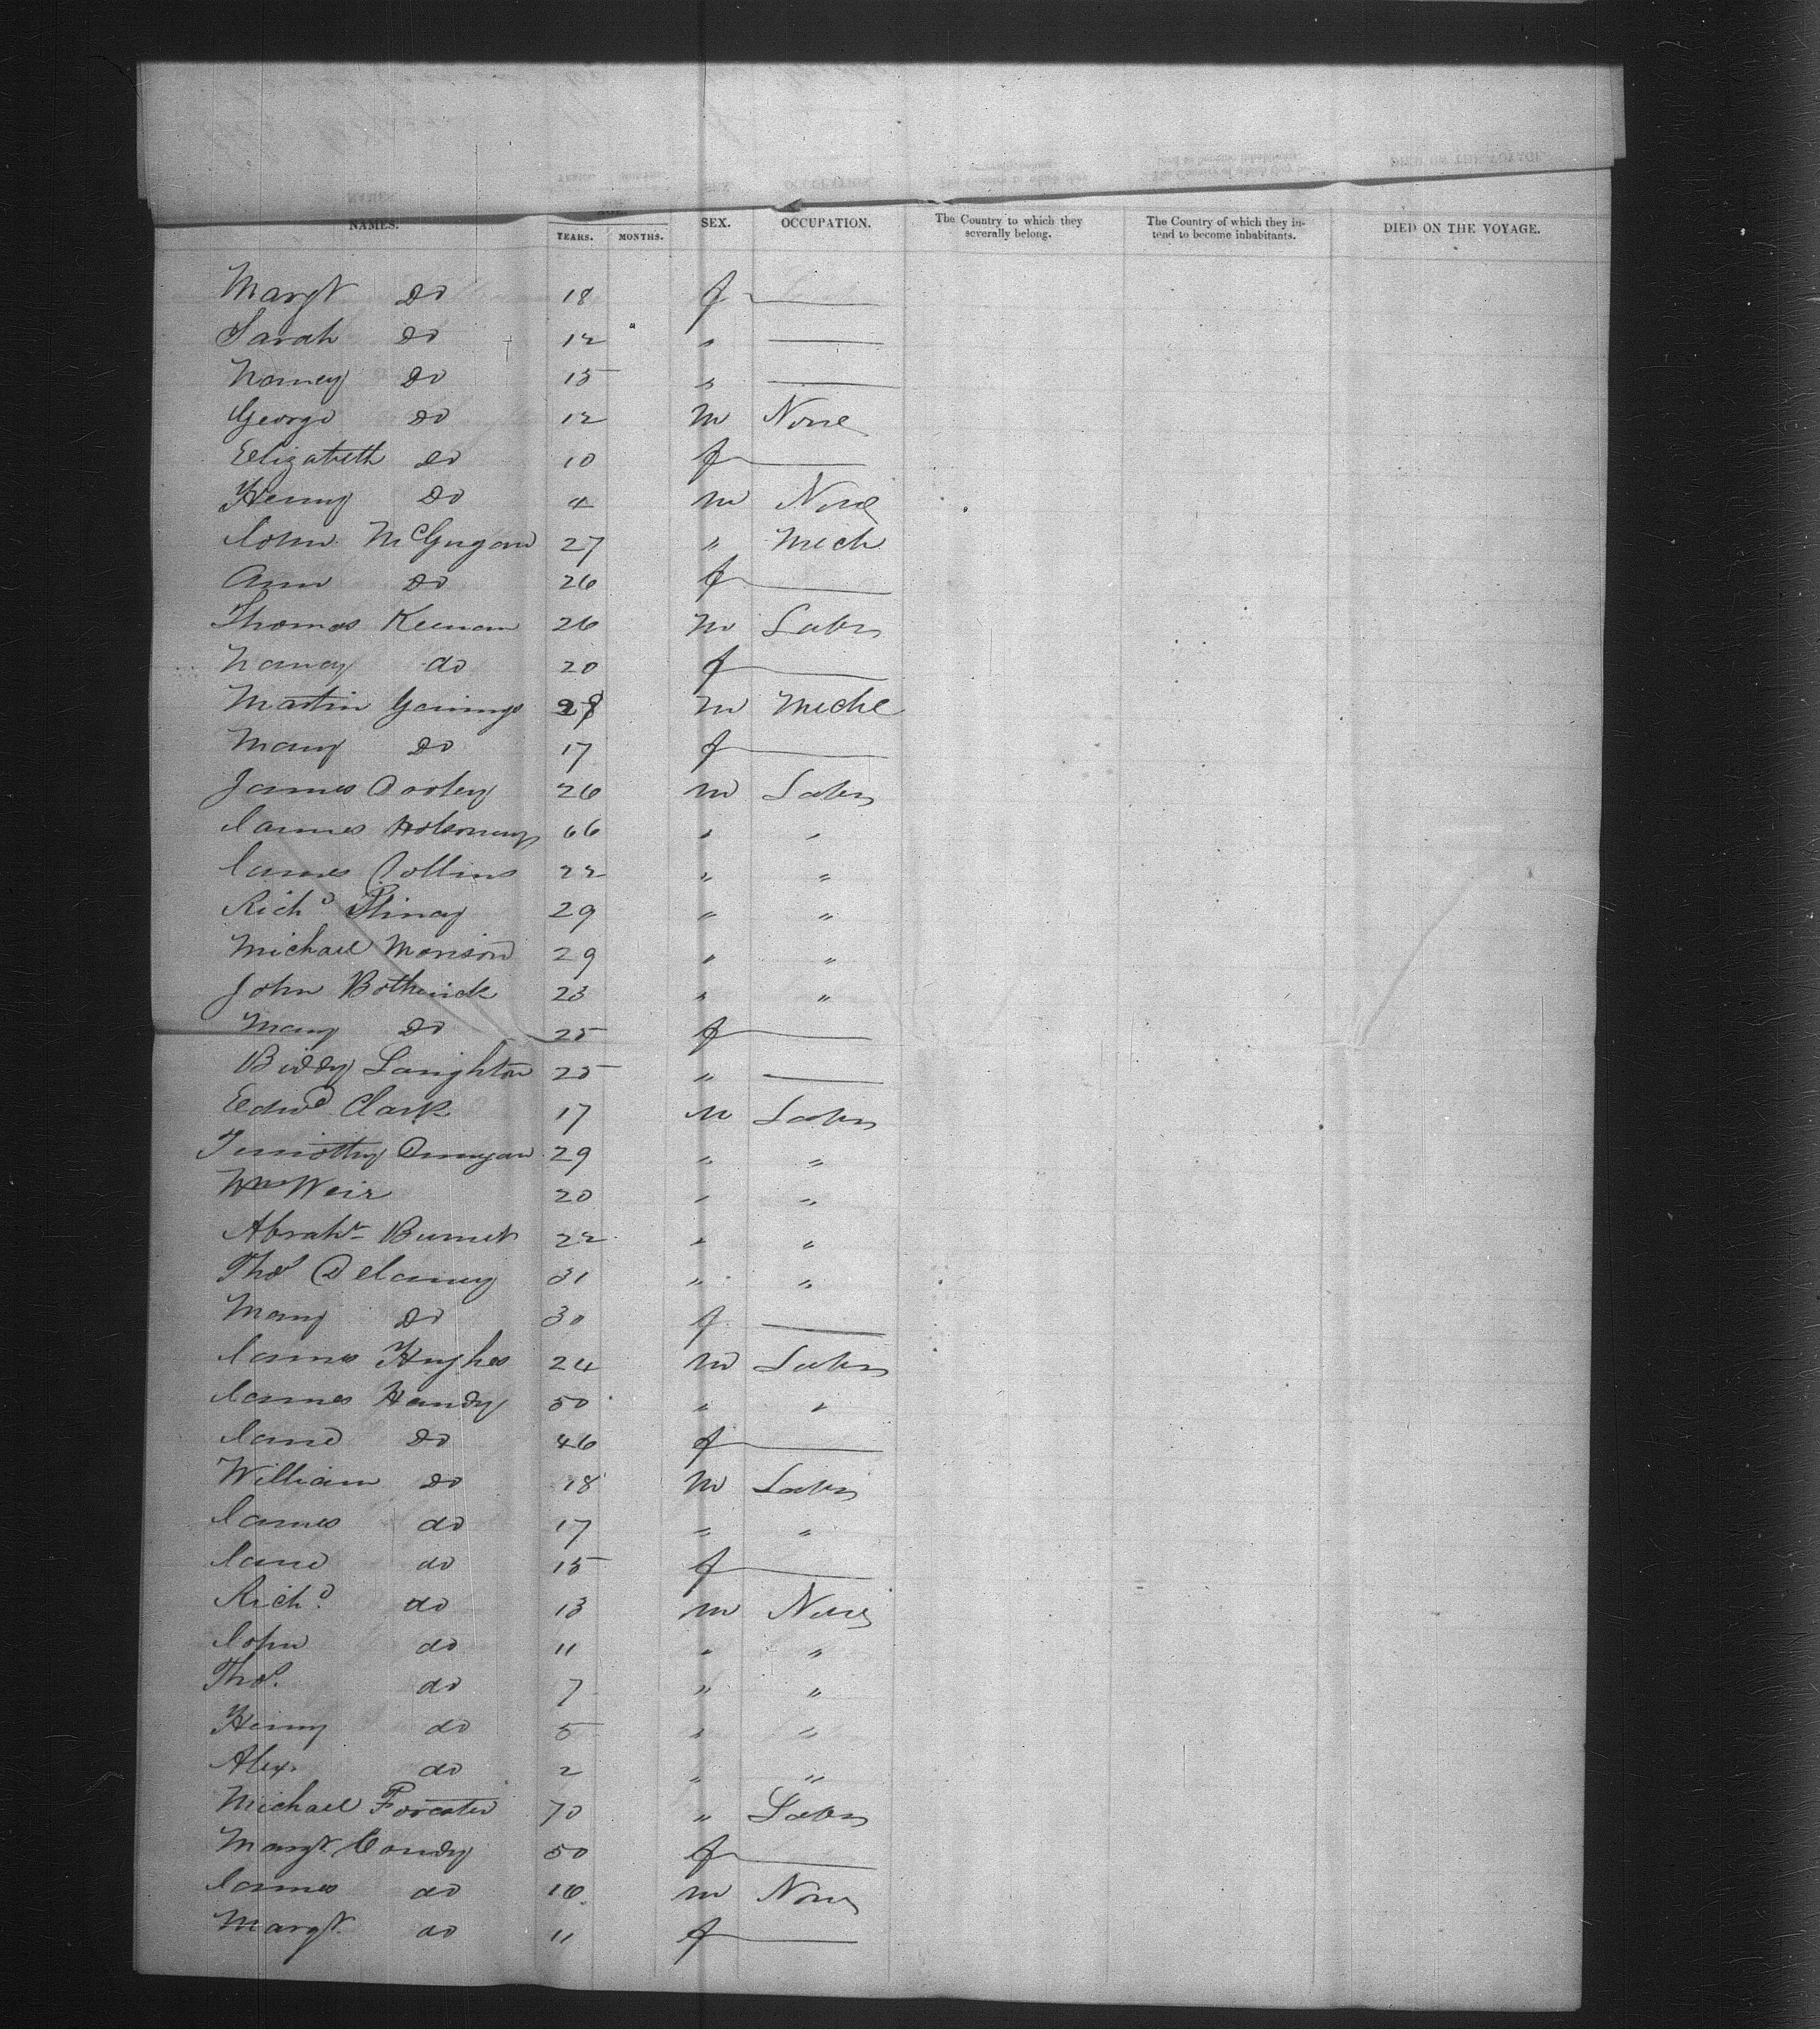 NAMES. AGE. SEX. OCCUPATION. The Country to which they severally belong. The Country of which they intend to become inhabitants. DIED ON THE VOYAGE.
YEARS. MONTHS.
Margt Do 18 f
Sarah Do 12 "
Nancy Do 15 "
George Do 12 m None
Elizabeth Do 10 f
Henry Do 4 m None
John McGugan 27 " Mech
Ann Do 26 f
Thomas Keenan 26 m Labr
Nancy do 20 f
Martin 28 m Mche
Mary Do 17 f
James Dooley 26 m Labr
James 66 " "
James Collins 22 " "
Richd 29 " "
Michael Morison 29 " "
John Bothwick 23 " "
Mary Do 25 f
Biddy Laughton 25 "
Edwd Clark 17 m Labr
Timothy 29 " "
Wm Weir 20 " "
Abrahm Burnet 22 " "
Thos Delaney 31 " "
Mary Do 30 f
James Hughes 24 m Labr
James Handy 50 " "
Jane Do 46 f
William Do 18 m Labr
James do 17 " "
Jane do 15 f
Richd. do 13 m None
John do 11 " "
Thos. do 7 " "
Henry do 5 " "
Alex. do 2 " "
Michael 70 " Labr
Margt Condy 50 f
James do 16 m None
Margt. do 11 f